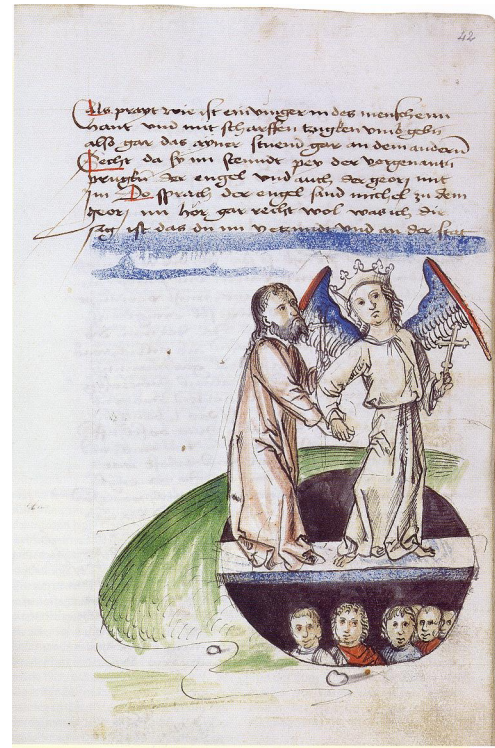 42
Als prayt wie ist ein vinger in des menschenn
hant vnd mit scharffen
also gar das ayner stuend gar an dem anderm
Secht da sy nu stenndt per der vorgenantn
prugkn der engel vnd auch der geori mit
Im Do sprach der engel sand michel zu dem
Georj nu hör gar recht wol was ich dir
sag ist das du nu vnd an der stat